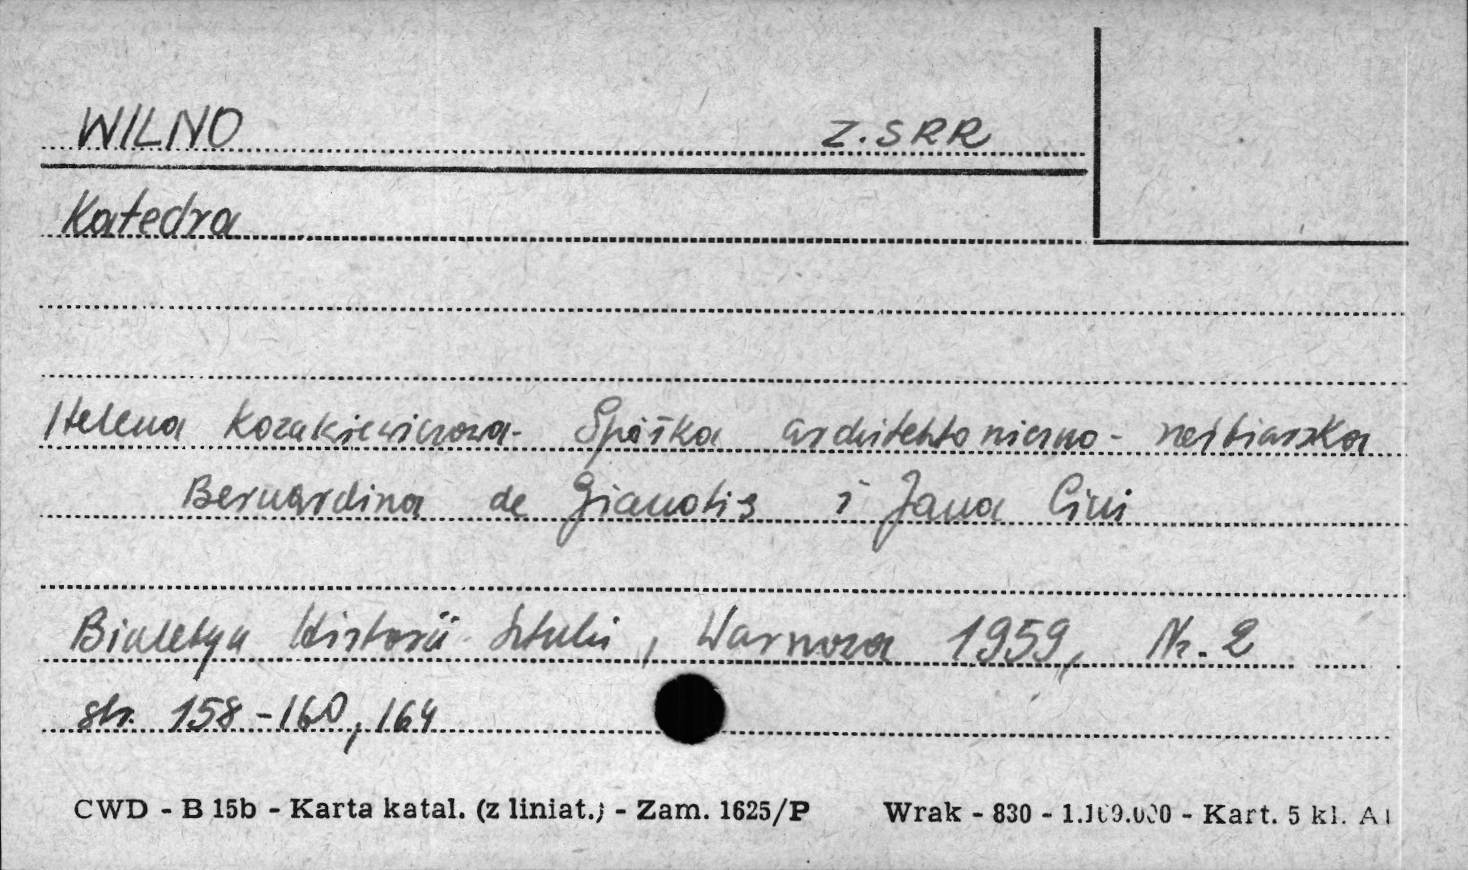 WILNO Z.SRR
Katedra
Helena Kozakiewiczowa - Spółka architektoniczno - rzeźbiarska
Bernardina de Gianotis i Jana Cini
Biuletyn Historii Sztuki, Warszawa 1959, Nr. 2
str. 158-160, 164
CWD - B 15b - Karta katal. (z liniat.) - Zam. 1625/P Wrak - 830 - 1.109.000 - Kart. 5 kl. A1